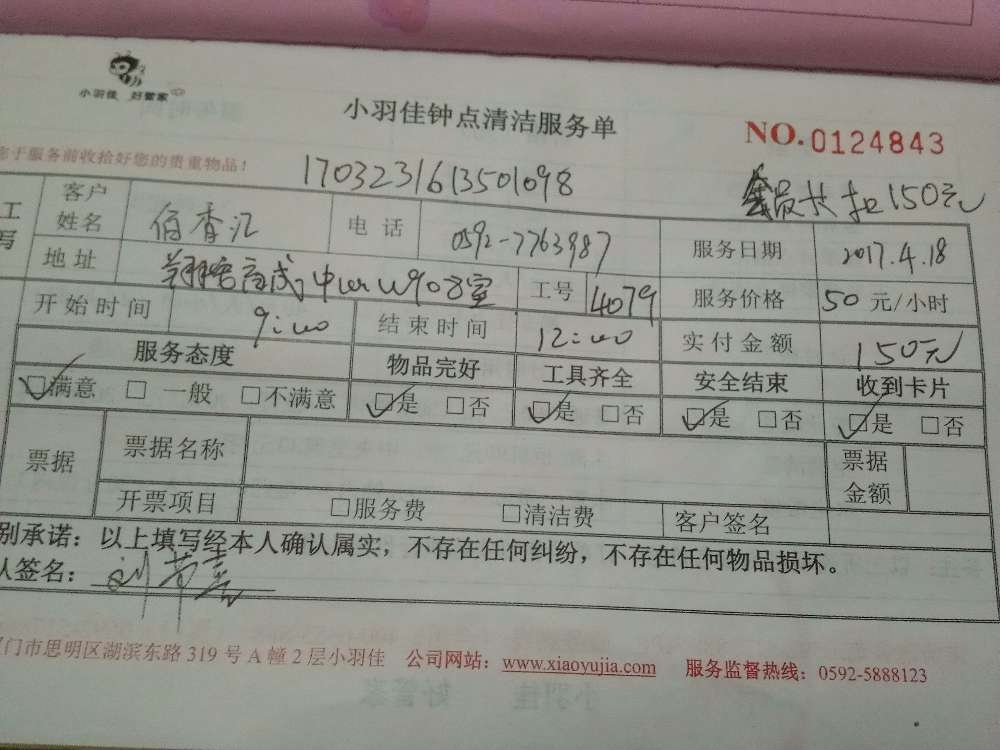 小羽佳 好管家
小羽佳钟点清洁服务单
NO.0124843
于服务前收拾好您的贵重物品!
1703231613501098
会员卡扣150元
工
写
客户姓名 佰香汇 电话 0592-7763987 服务日期 2017.4.18
地址 908室 工号 4079 服务价格 50元/小时
开始时间 9:00 结束时间 12:00 实付金额 150元
服务态度 物品完好 工具齐全 安全结束 收到卡片
☑满意 □一般 □不满意 ☑是 □否 ☑是 □否 ☑是 □否 ☑是 □否
票据 票据名称 票据金额
开票项目 □服务费 □清洁费 客户签名
别承诺:以上填写经本人确认属实,不存在任何纠纷,不存在任何物品损坏。
人签名:
门市思明区湖滨东路319号A幢2层小羽佳 公司网站:www.xiaoyujia.com 服务监督热线:0592-5888123